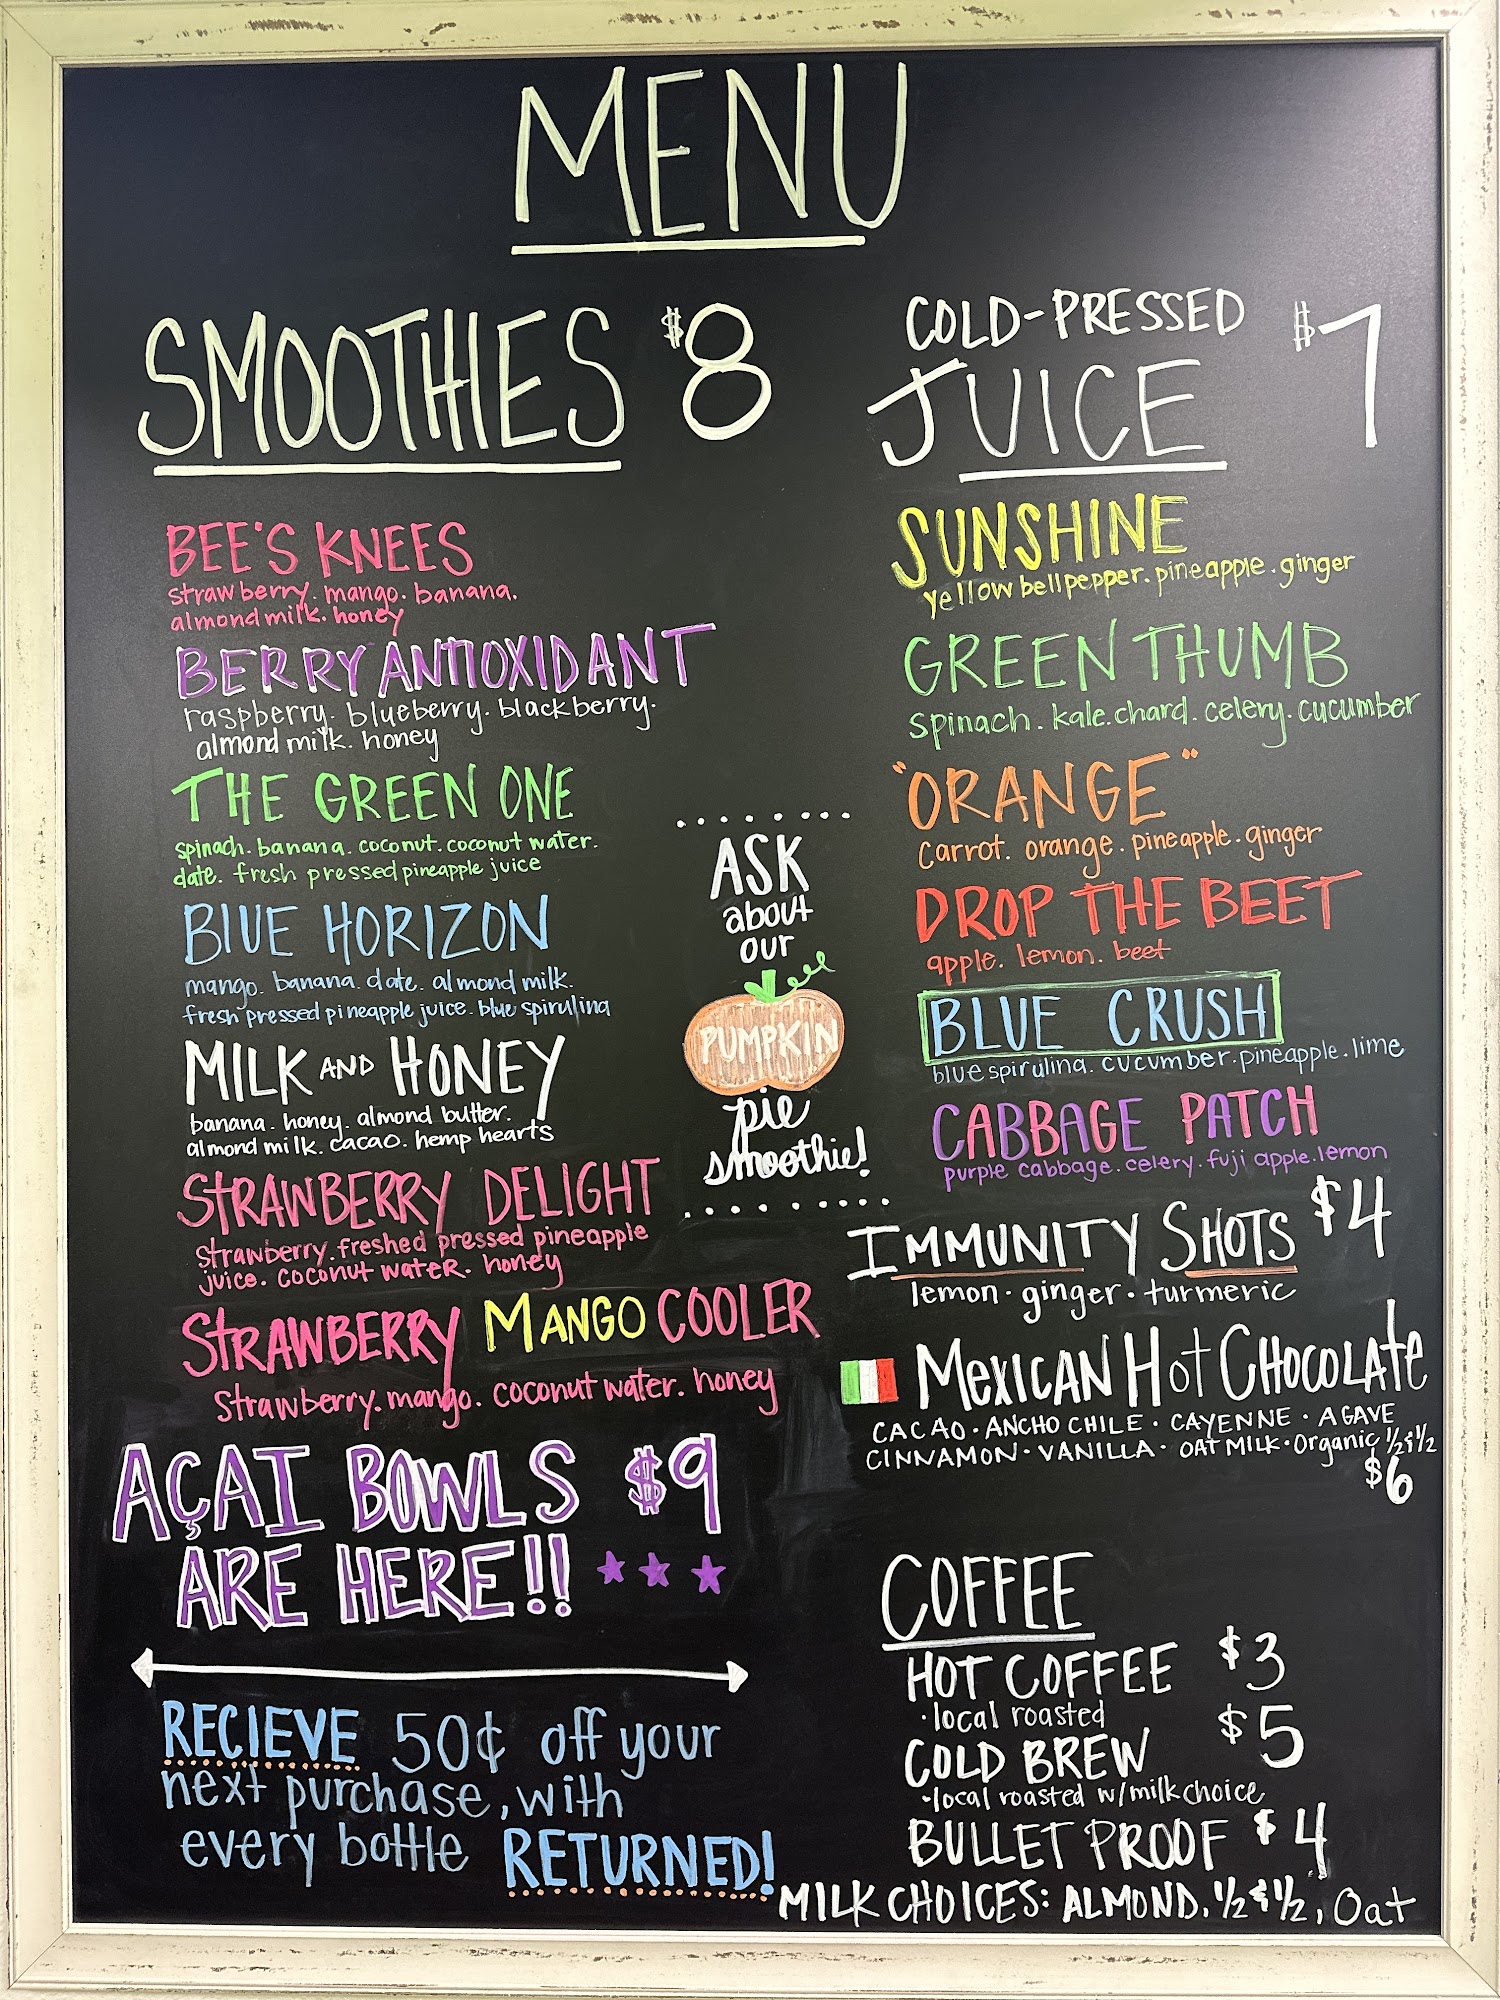 MENU
SMOOTHIES $8
BEE'S KNEES
strawberry. mango. banana.
almond milk. honey
BERRY ANTIOXIDANT
raspberry. blueberry. blackberry.
almond milk. honey
THE GREEN ONE
spinach. banana. coconut. coconut water.
date. fresh pressed pineapple juice
BLUE HORIZON
mango. banana. date. almond milk.
fresh pressed pineapple juice. blue spirulina
MILK AND HONEY
banana. honey. almond butter.
almond milk. cacao. hemp hearts
STRAWBERRY DELIGHT
strawberry. freshed pressed pineapple
juice. coconut water. honey
STRAWBERRY MANGO COOLER
strawberry. mango. coconut water. honey
AÇAI BOWLS $9
ARE HERE!!
RECIEVE 50¢ off your
next purchase, with
every bottle RETURNED!
ASK
about
our
PUMPKIN
pie
smoothie!
COLD-PRESSED
JUICE $7
SUNSHINE
yellow bell pepper. pineapple. ginger
GREEN THUMB
spinach. kale. chard. celery. cucumber
"ORANGE"
carrot. orange. pineapple. ginger
DROP THE BEET
apple. lemon. beet
BLUE CRUSH
blue spirulina. cucumber. pineapple. lime
CABBAGE PATCH
purple cabbage. celery. fuji apple. lemon
IMMUNITY SHOTS $4
lemon · ginger · turmeric
MEXICAN HOT CHOCOLATE
CACAO · ANCHO CHILE · CAYENNE · AGAVE
CINNAMON · VANILLA · OAT MILK · Organic ½ & ½
$6
COFFEE
HOT COFFEE $3
· local roasted
COLD BREW $5
· local roasted w/ milk choice
BULLET PROOF $4
MILK CHOICES: ALMOND. ½ & ½, Oat